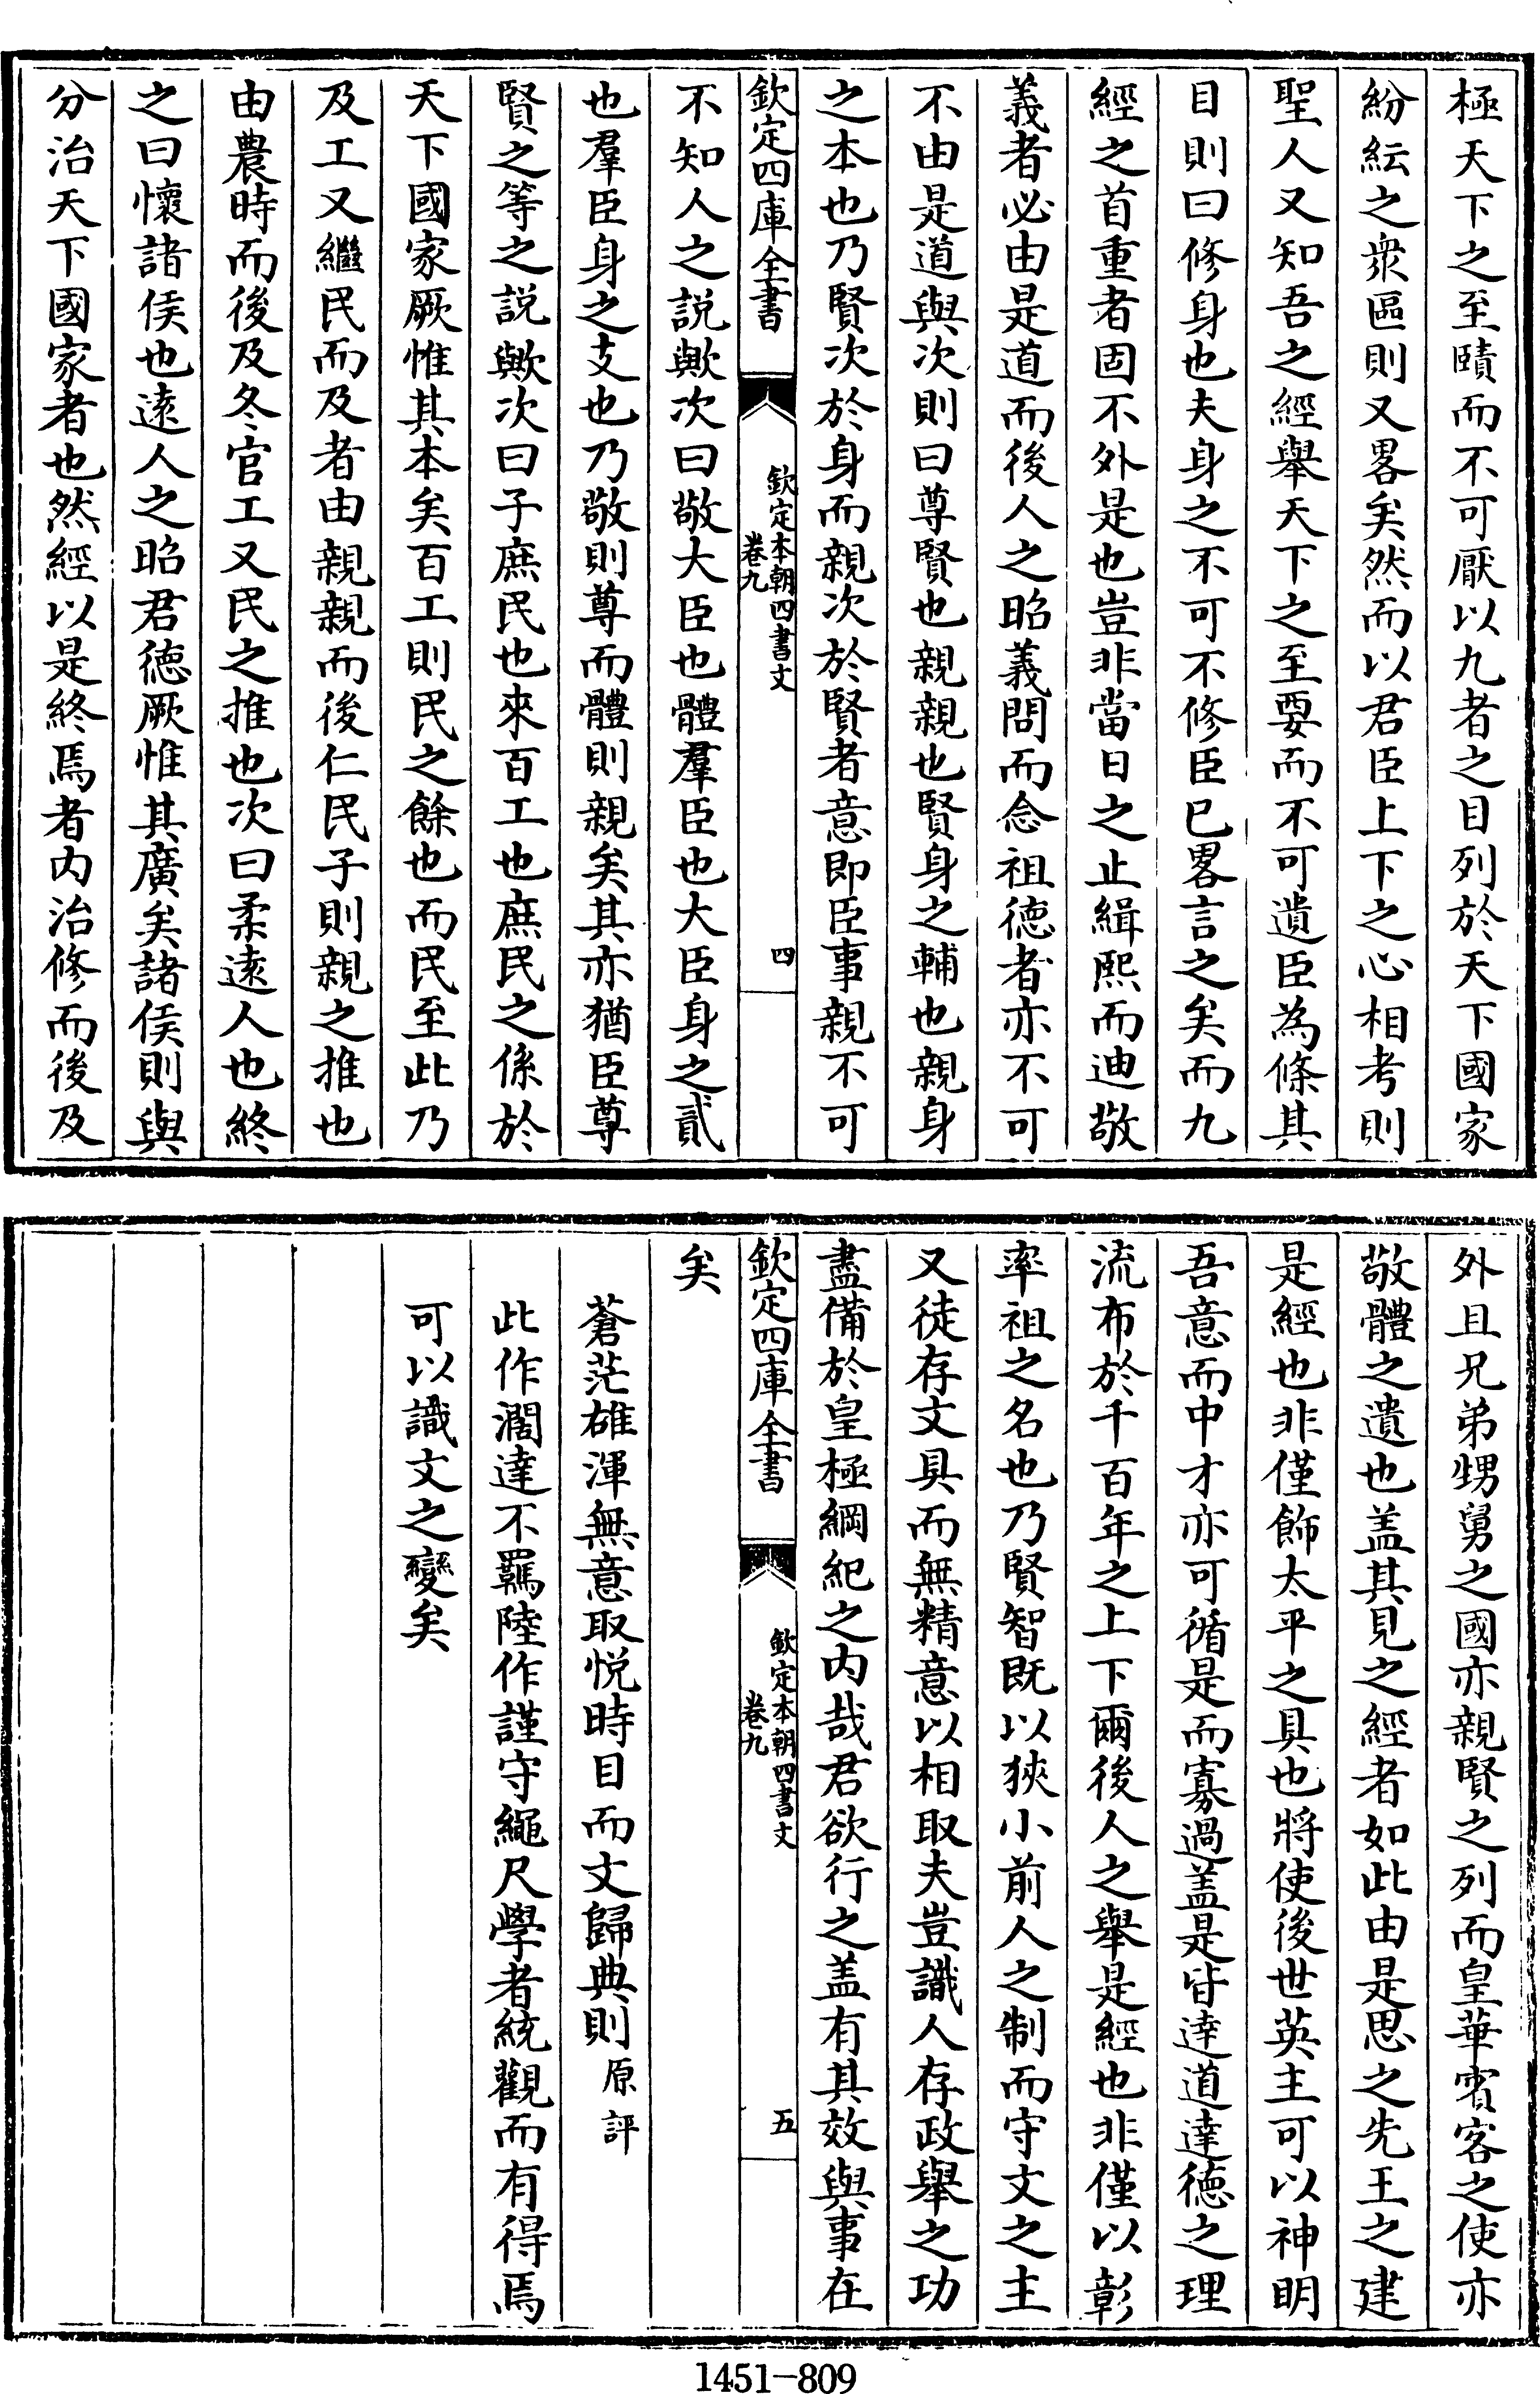 極天下之至賾而不可厭以九者之目列於天下國家
紛紜之衆區則又畧矣然而以君臣上下之心相考則
聖人又知吾之經舉天下之至要而不可遺臣為條其
目則曰修身也夫身之不可不修臣已畧言之矣而九
經之首重者固不外是也豈非當日之止緝熙而迪敬
義者必由是道而後人之昭義問而念祖德者亦不可
不由是道與次則曰尊賢也親親也賢身之輔也親身
之本也乃賢次於身而親次於賢者意即臣事親不可
欽定四庫全書
欽定本朝四書文
卷九
四
不知人之說歟次曰敬大臣也體羣臣也大臣身之貳
也羣臣身之支也乃敬則尊而體則親矣其亦猶臣尊
賢之等之說歟次曰子庶民也來百工也庶民之係於
天下國家厥惟其本矣百工則民之餘也而民至此乃
及工又繼民而及者由親親而後仁民子則親之推也
由農時而後及冬官工又民之推也次曰柔逺人也終
之曰懷諸侯也逺人之昭君德厥惟其廣矣諸侯則與
分治天下國家者也然經以是終焉者内治修而後及
外且兄弟甥舅之國亦親賢之列而皇華賓客之使亦
敬體之遺也盖其見之經者如此由是思之先王之建
是經也非僅飾太平之具也將使後世英主可以神明
吾意而中才亦可循是而寡過盖是皆逹道達德之理
流布於千百年之上下爾後人之舉是經也非僅以彰
率祖之名也乃賢智既以狹小前人之制而守文之主
又徒存文具而無精意以相取夫豈識人存政舉之功
盡備於皇極綱紀之内哉君欲行之盖有其效與事在
欽定四庫全書
欽定本朝四書文
卷九
五
矣
蒼茫雄渾無意取悅時目而文歸典則 原評
此作濶達不羈陸作謹守繩尺學者統觀而有得焉
可以識文之變矣
1451-809